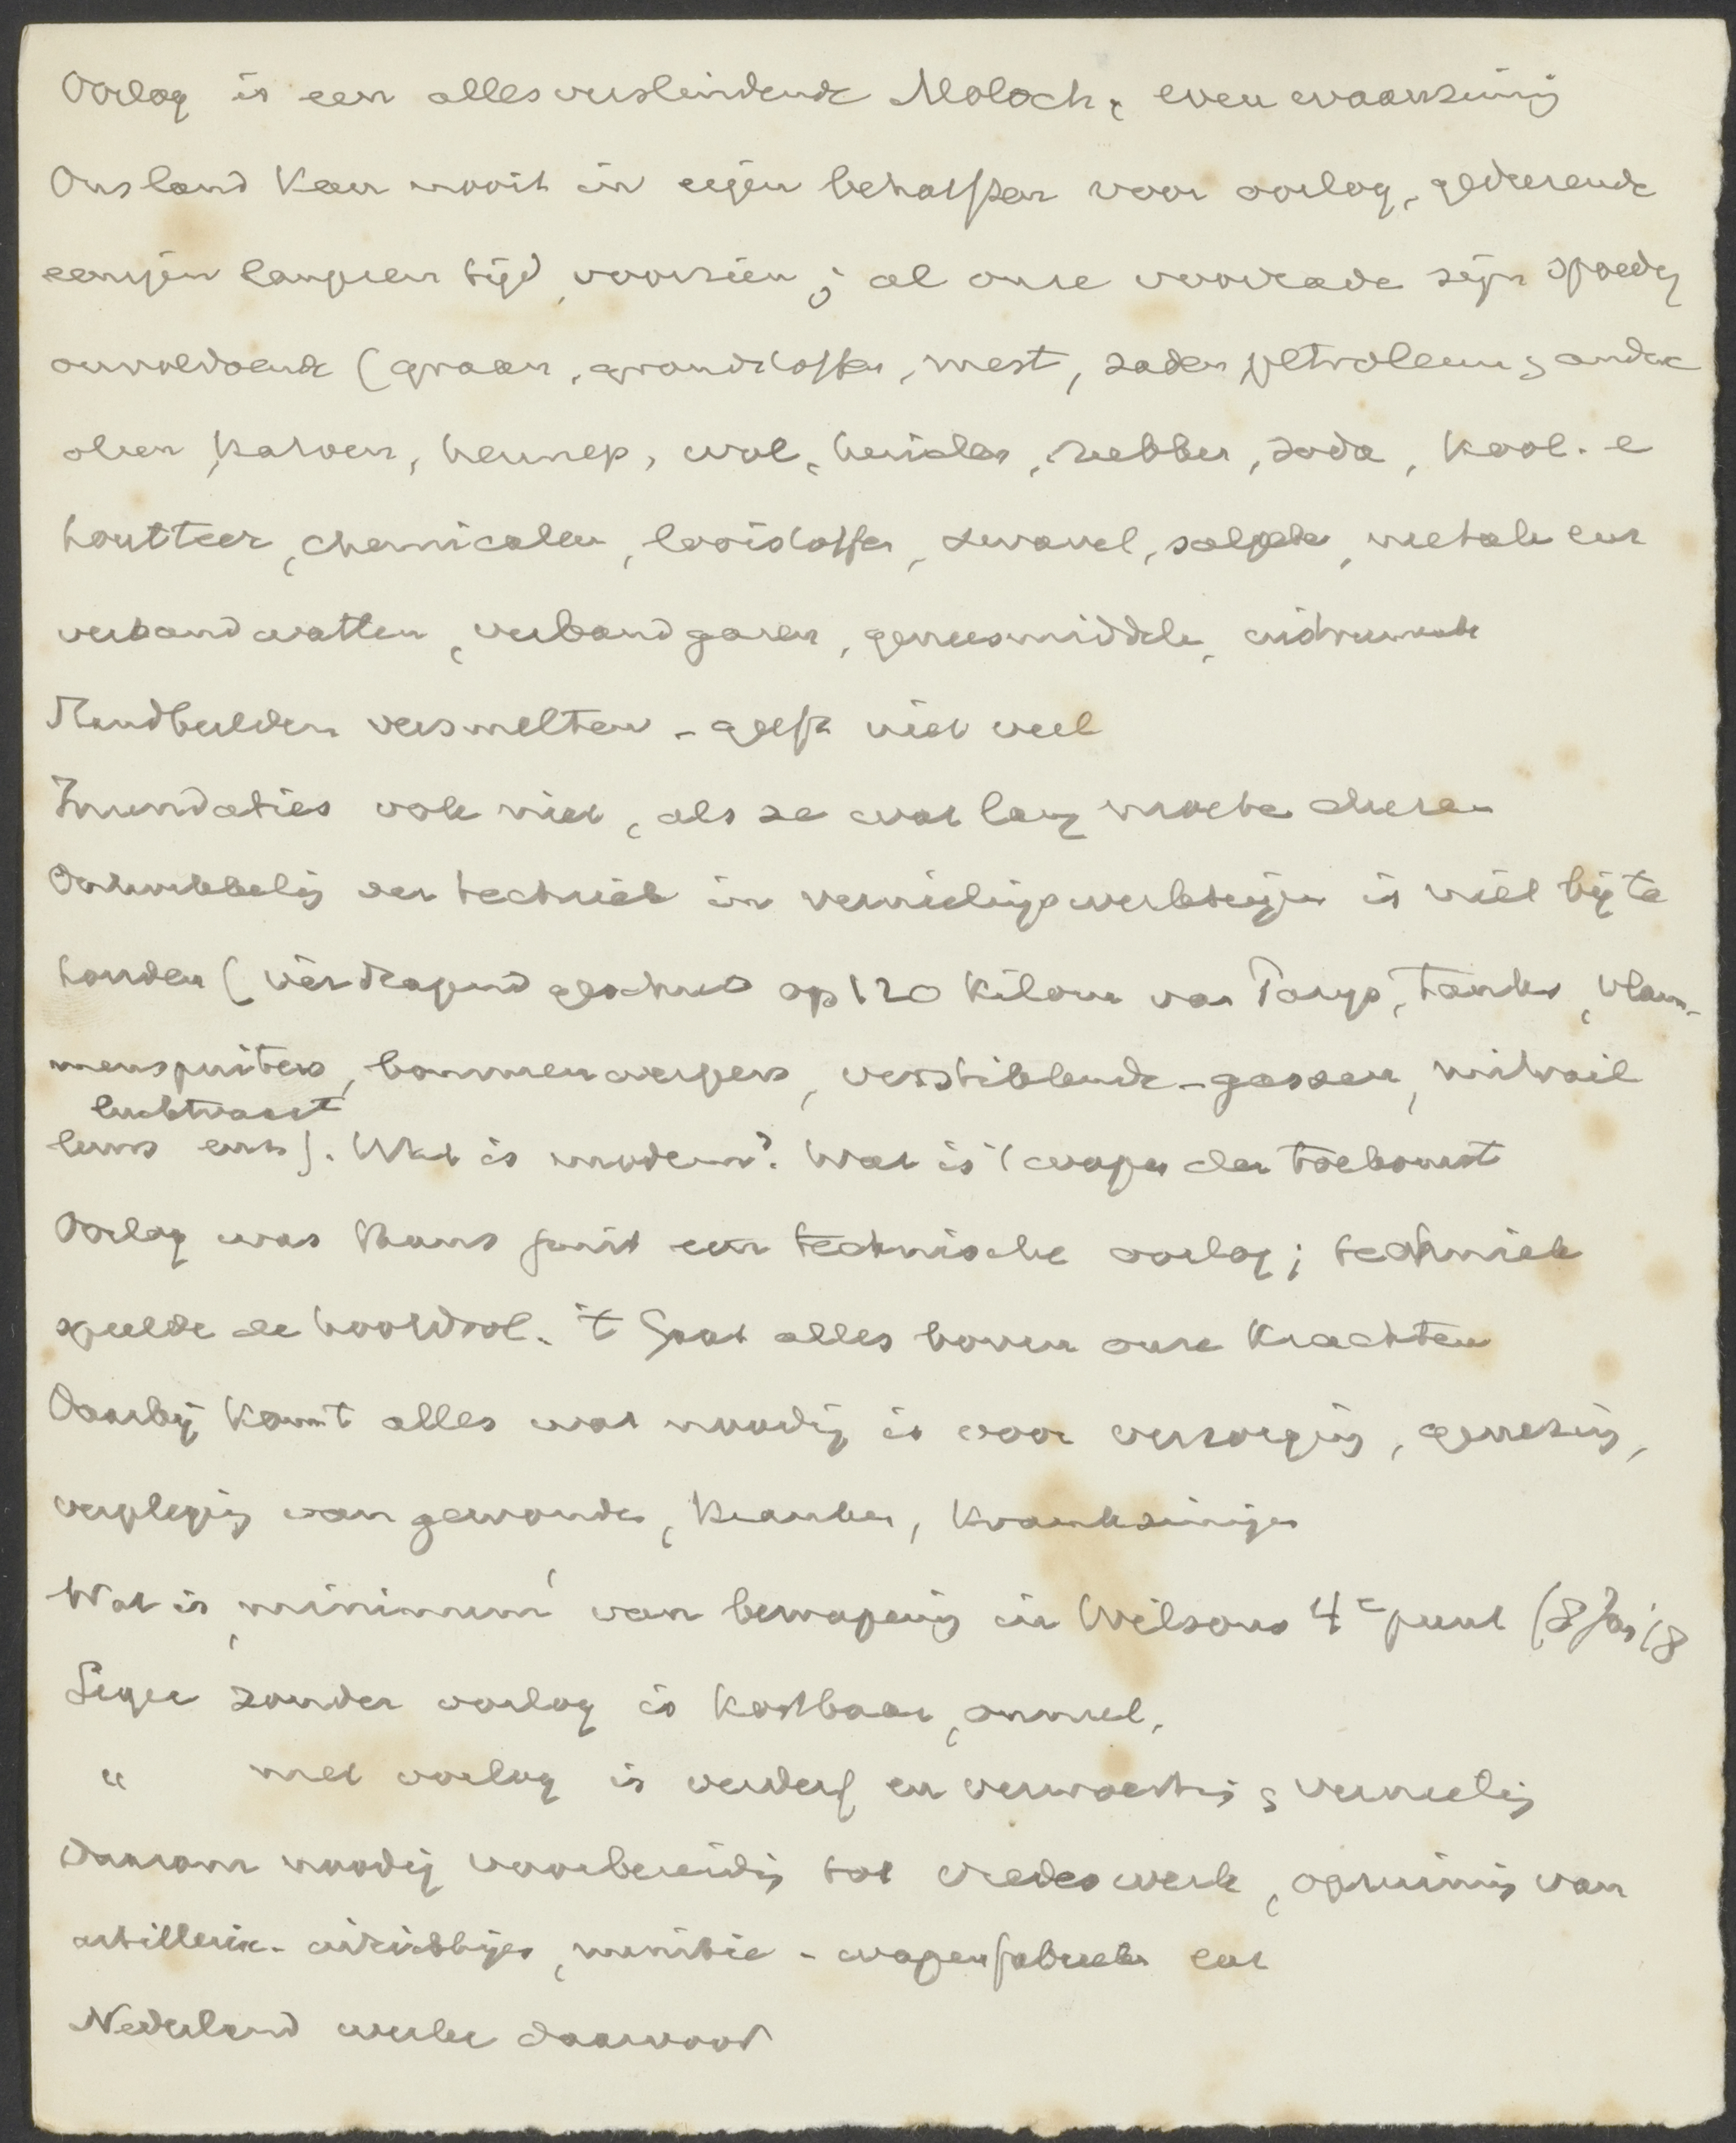 Oorlog is een allesverslindende Moloch, even waanzinnig
Ons land kan nooit in eigen behoeften voor oorlog, gedurende
eenigen langeren tijd, voorzien; al onze voorrade zijn spoedig
onvoldoende (graan, grondstoffen, mest, zaden, petroleum & andere
olien, katoen, hennep, wol, huiden, rubber, soda, kool- e
houtteer, chemicalen, looistoffen, zwavel, salpeter, metale enz
verbandwatten, verbandgazen, geneesmiddele, instrumente
Standbeelden versmelten - geeft niet veel
Inundaties ook niet, als ze wat lang moete duren
Ontwikkeling der techniek in vernielingswerktuigen is niet bij te
houden (vérdragend geschut op 120 kilom van Parijs, tanks, vlam-
menspuiters, bommenwerpers, verstikkende-gassen, mitrail
luchtvaart
leurs enz). Wat is modern? Wat is 't wapen der toekomst
Oorlog was thans juist een technische oorlog; techniek
speelde de hoofdrol. 't Gaat alles boven onze krachten
Daarbij komt alles wat noodig is voor verzorging, genezing,
verpleging van gewonde, kranken, krankzinnigen
Wat is 'minimum' van bewapening in Wilsons 4e punt (8 Jan '18
Leger zonder oorlog is kostbaar, onnut,
" met oorlog is verderf en verwoesting & vernieling
Daarom noodig voorbereiding tot vredeswerk, opruiming van
artillerie-inrichtingen, munitie-wapenfabrieken enz
Nederland werke daarvoor